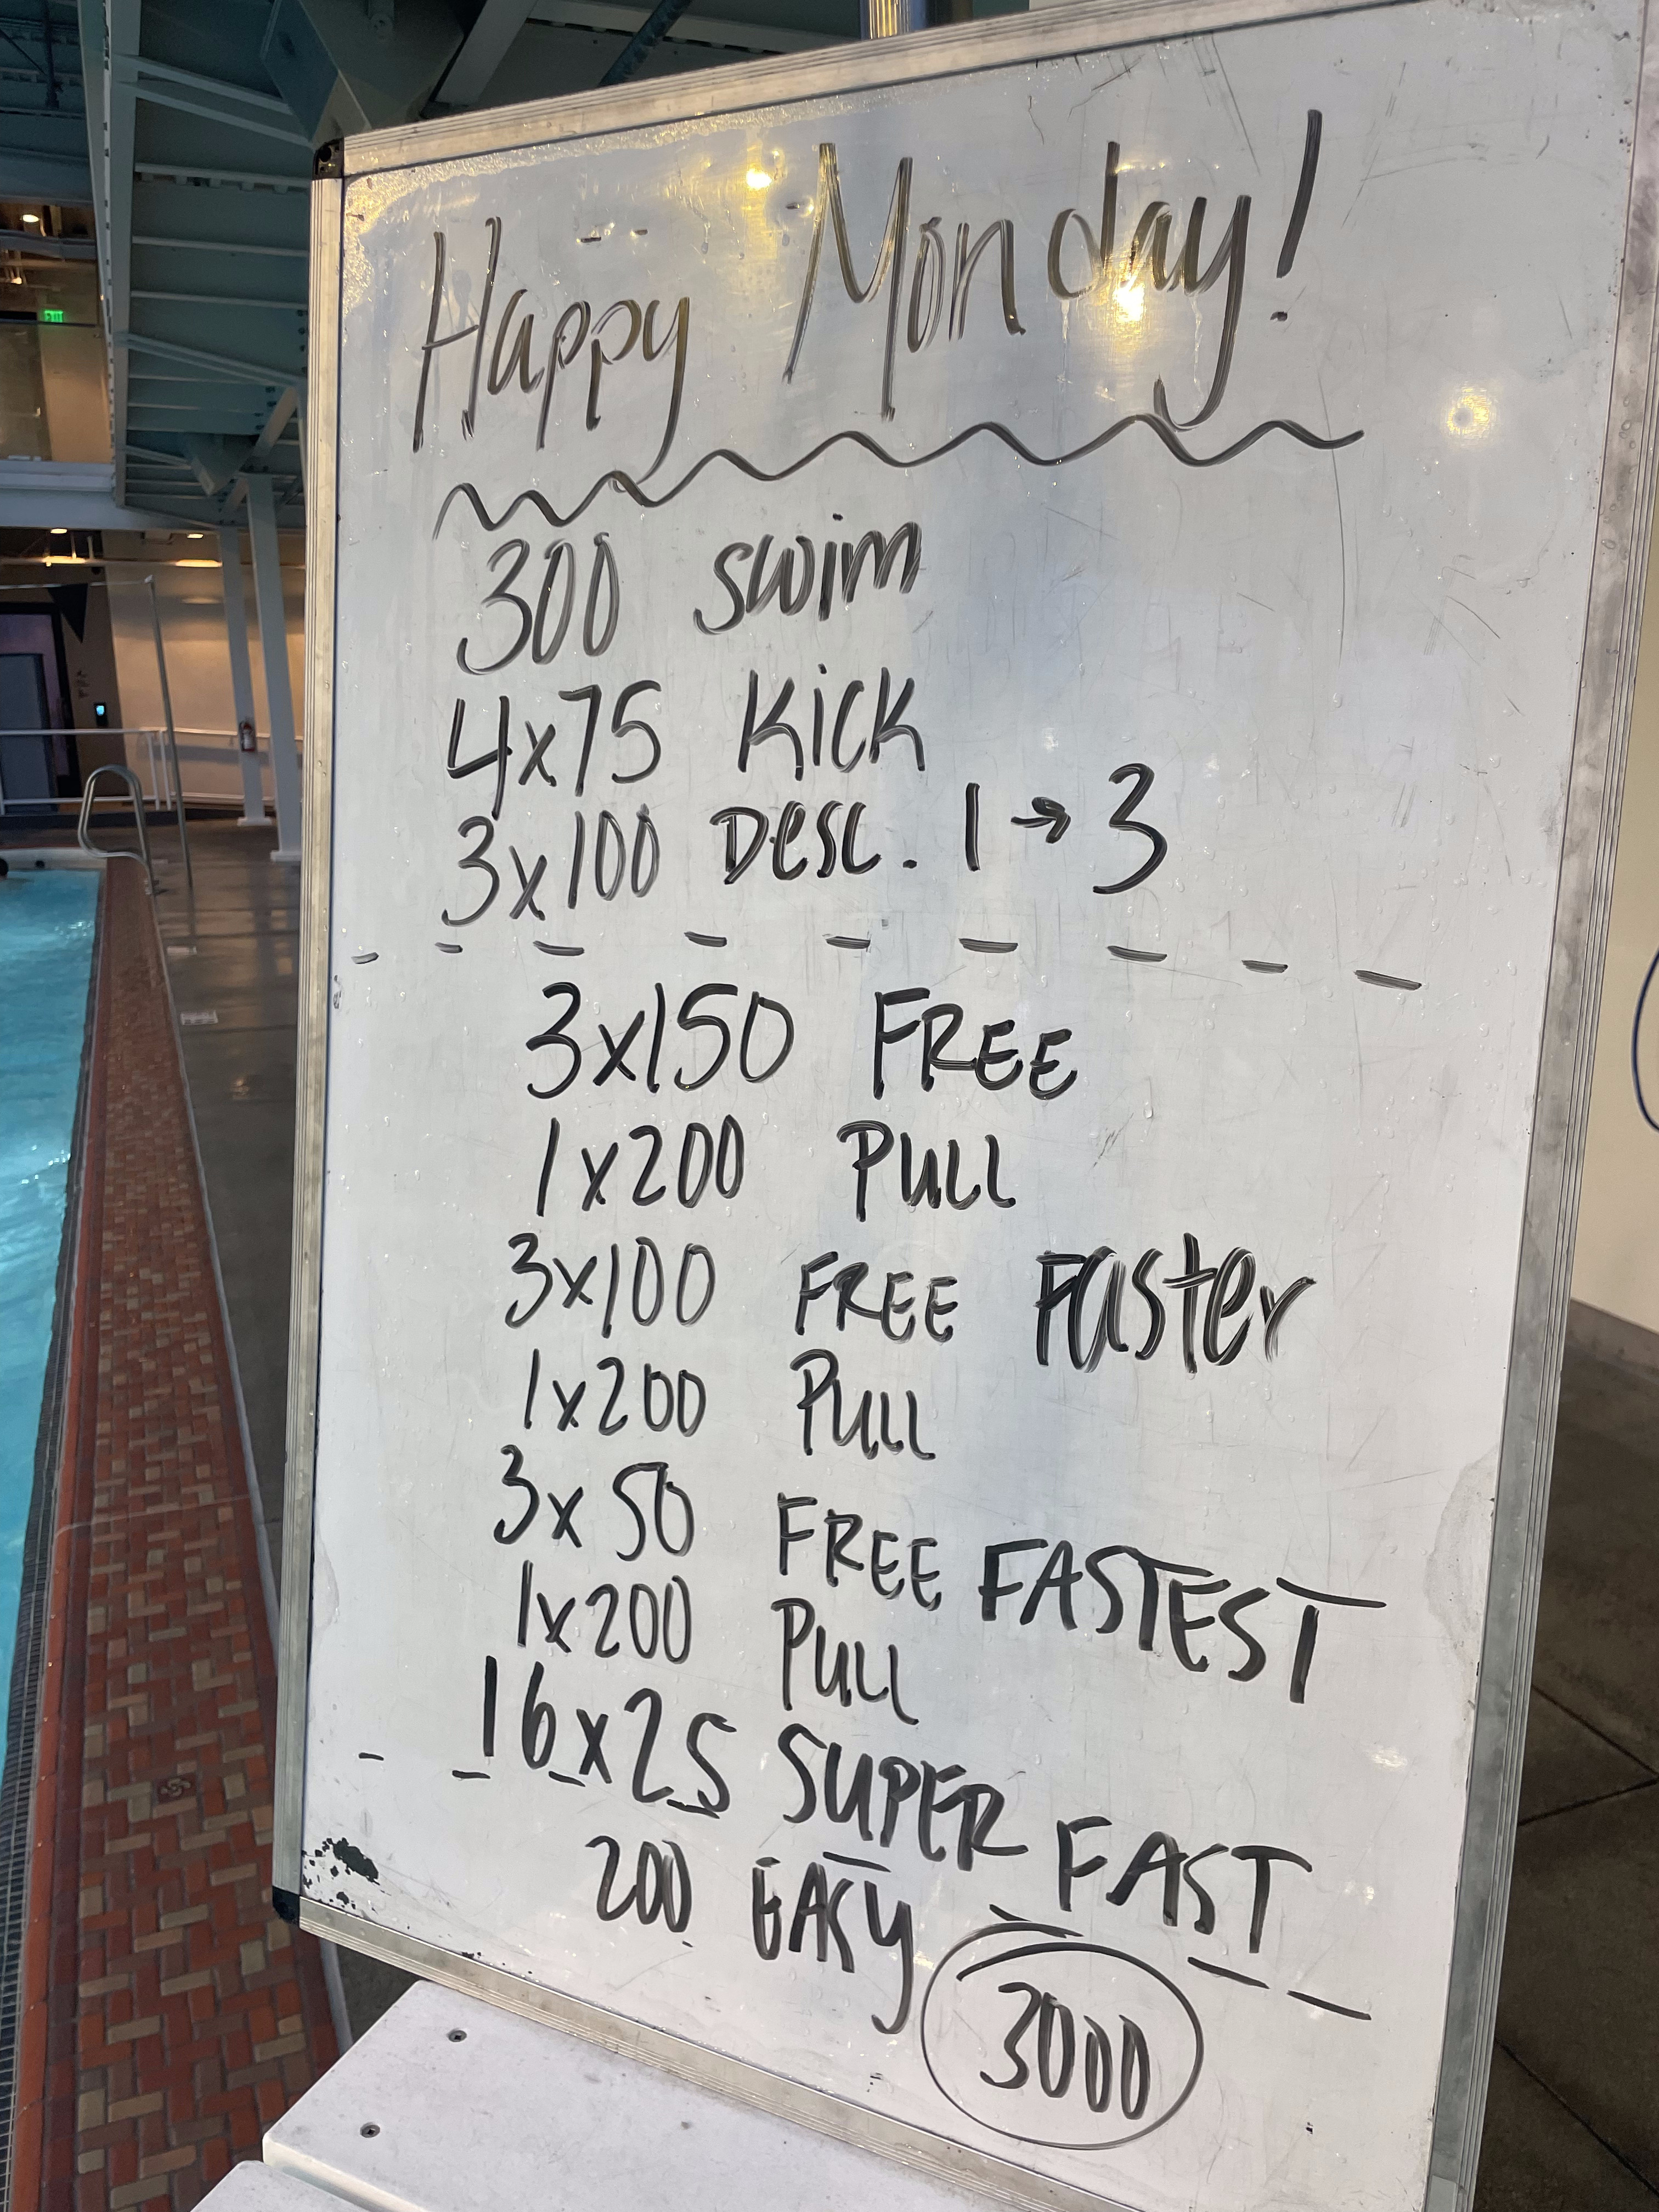 Happy Monday!
300 swim
4x75 Kick
3x100 Desc. 1→3
3x150 FREE
1x200 PULL
3x100 FREE Faster
1x200 PULL
3x50 FREE FASTEST
1x200 PULL
16x25 SUPER FAST
200 EASY
3000